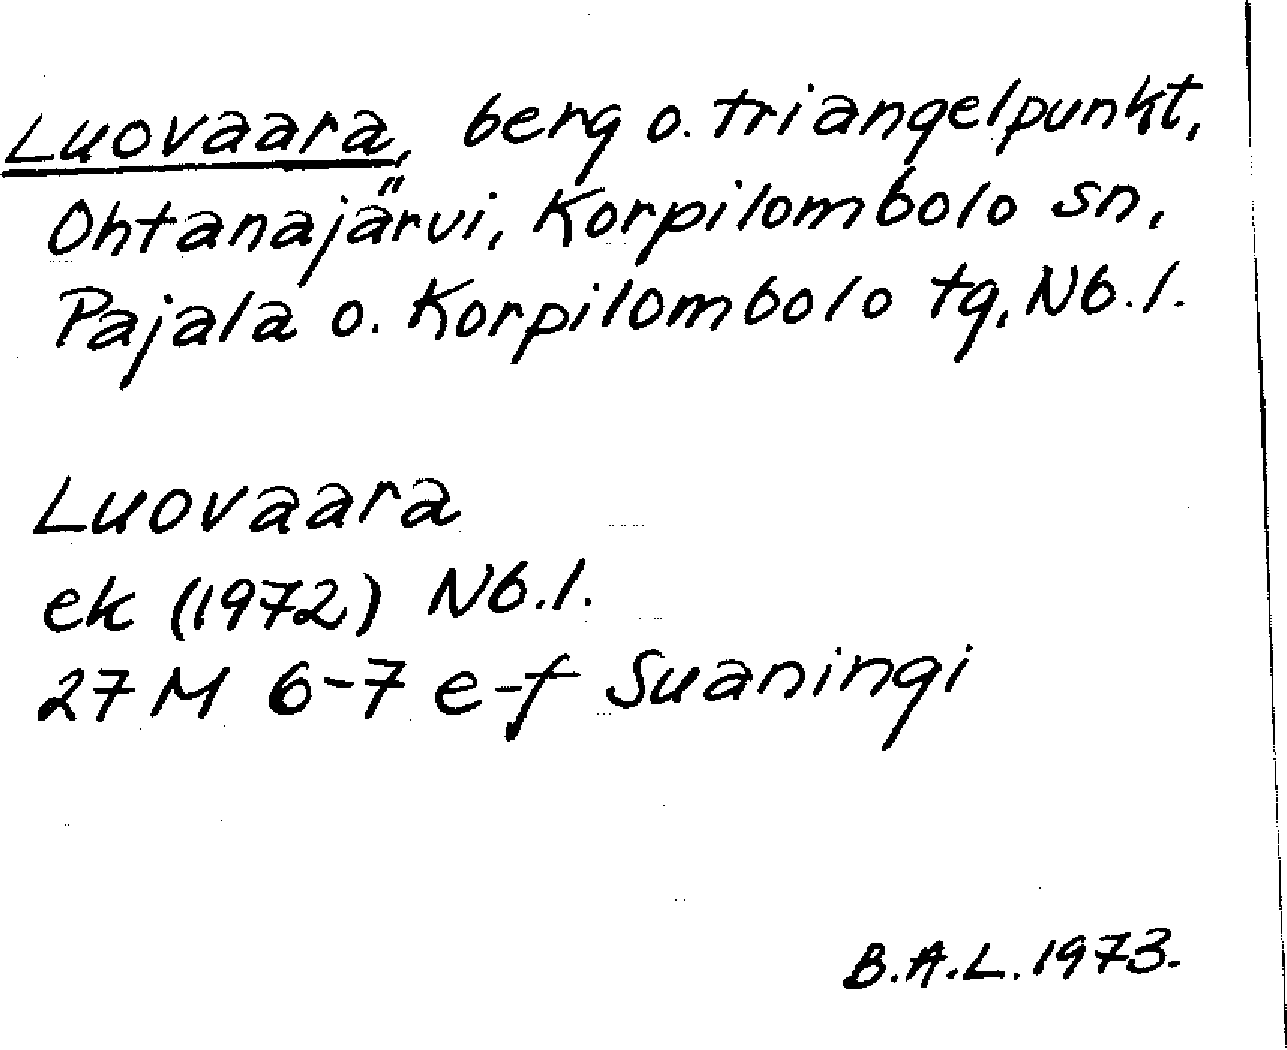 Luovaara, berg o. triangelpunkt,
Ohtanajärvi, Korpilombolo sn,
Pajala o. Korpilombolo tg, Nb.l.
Luovaara
ek (1972) Nb.l.
27 M 6-7 e-f Suaningi
B.A.L. 1973.